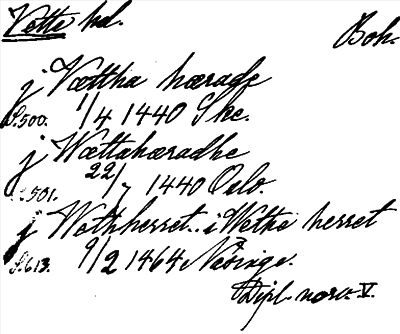 Vette hd. Boh.
j Vættha hærade
S.500. 1/4 1440 Ske.
j Wættahæradhe
S.501. 22/7 1440 Oslo.
j Wethherret.. i Wethe herret
S.613. 9/2 1464 Næsinge.
Dipl. norv. V.